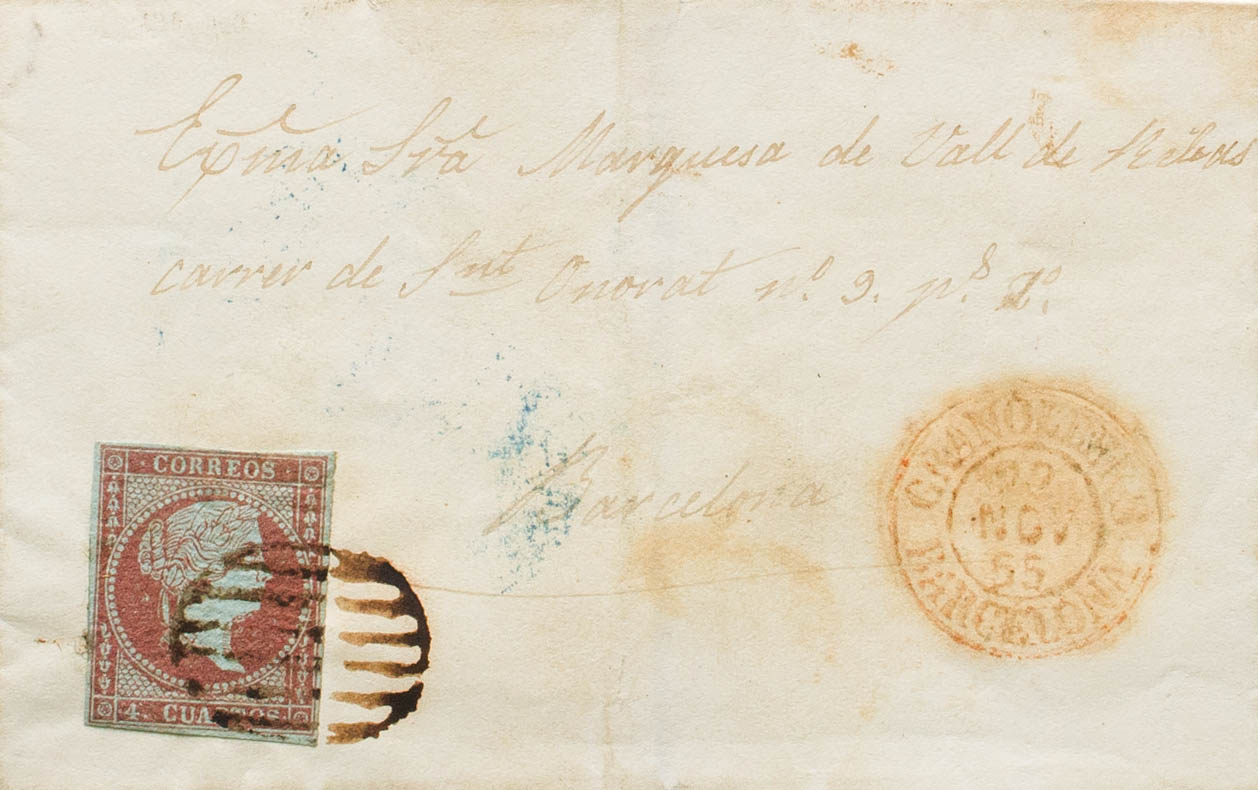 Exma Sra Marquesa de Vall de Ribas
carrer de Snt Onorat nº 9. ps 2º.
Barcelona
CORREOS
4. CUARTOS
GRANOLLERS
NOV
55
BARCELONA